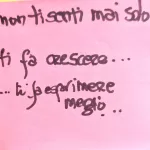 non ti senti mai solo
ti fa crescere...
... ti fa esprimere
meglio...